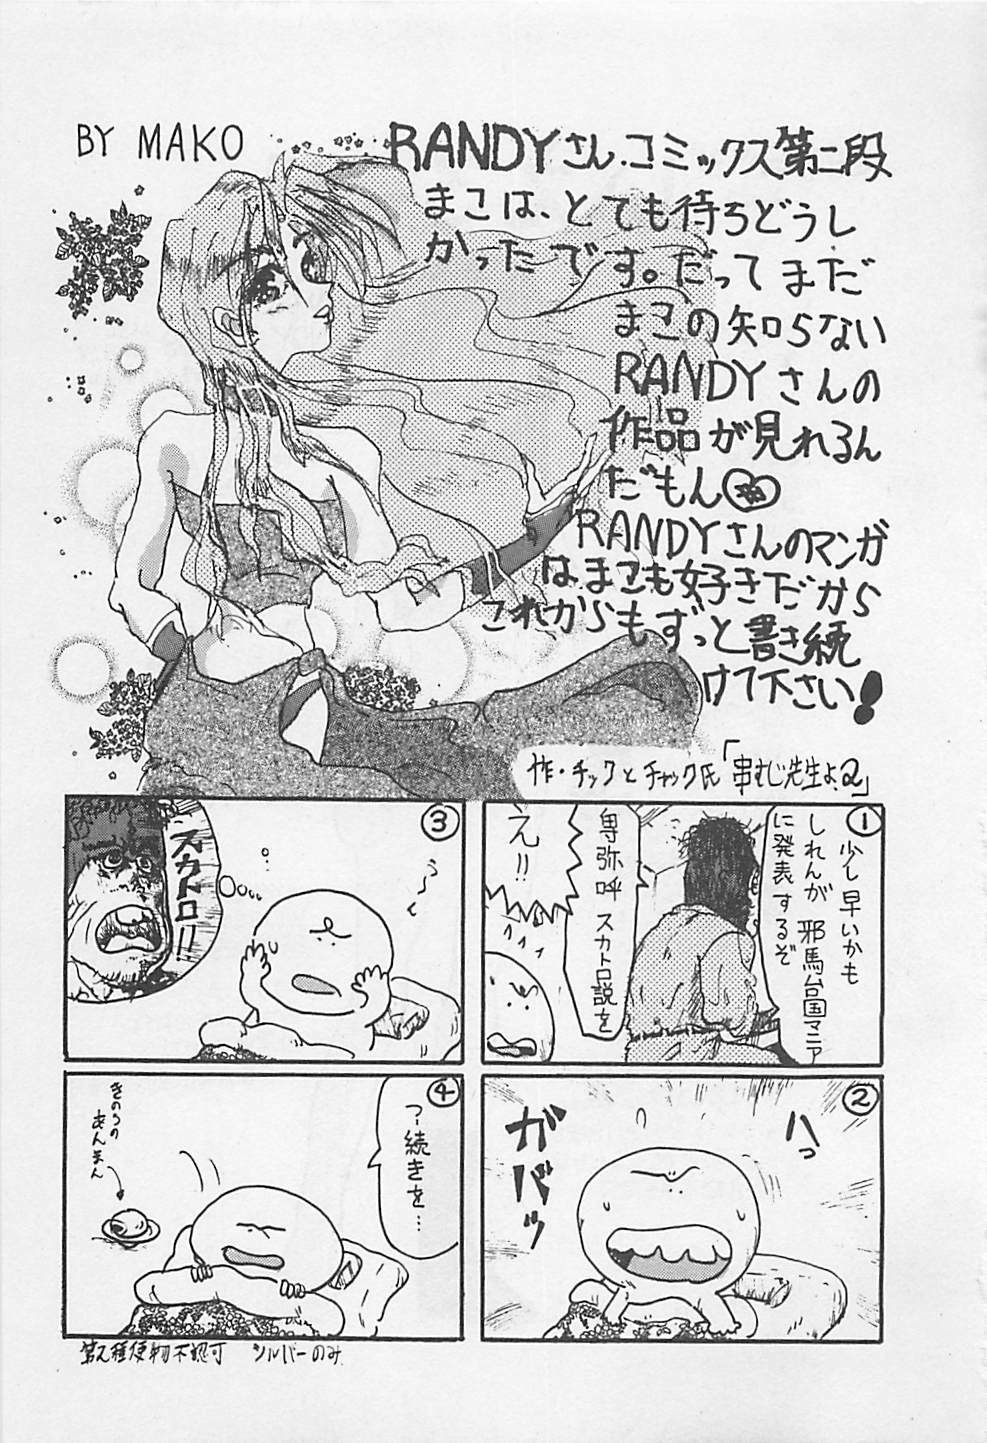 BY MAKO
RANDYさん.コミックス第二段
まこは、とても待ちどうし
かったです。だってまだ
まこの知らない
RANDYさんの
作品が見れるん
だもん
RANDYさんのマンガ
はまこも好きだから
これからもずっと書き続
けて下さい!
作・チックとチャック氏「串むじ先生よ2」
①
少し早いかも
しれんが邪馬台国マニア
に発表するぞ
卑弥呼スカトロ説を
え!!
②
ハっ
ガバッ
③
う〜
スカトロ!!
④
つ…続きを…
きのうの
あんまん
シルバーのみ